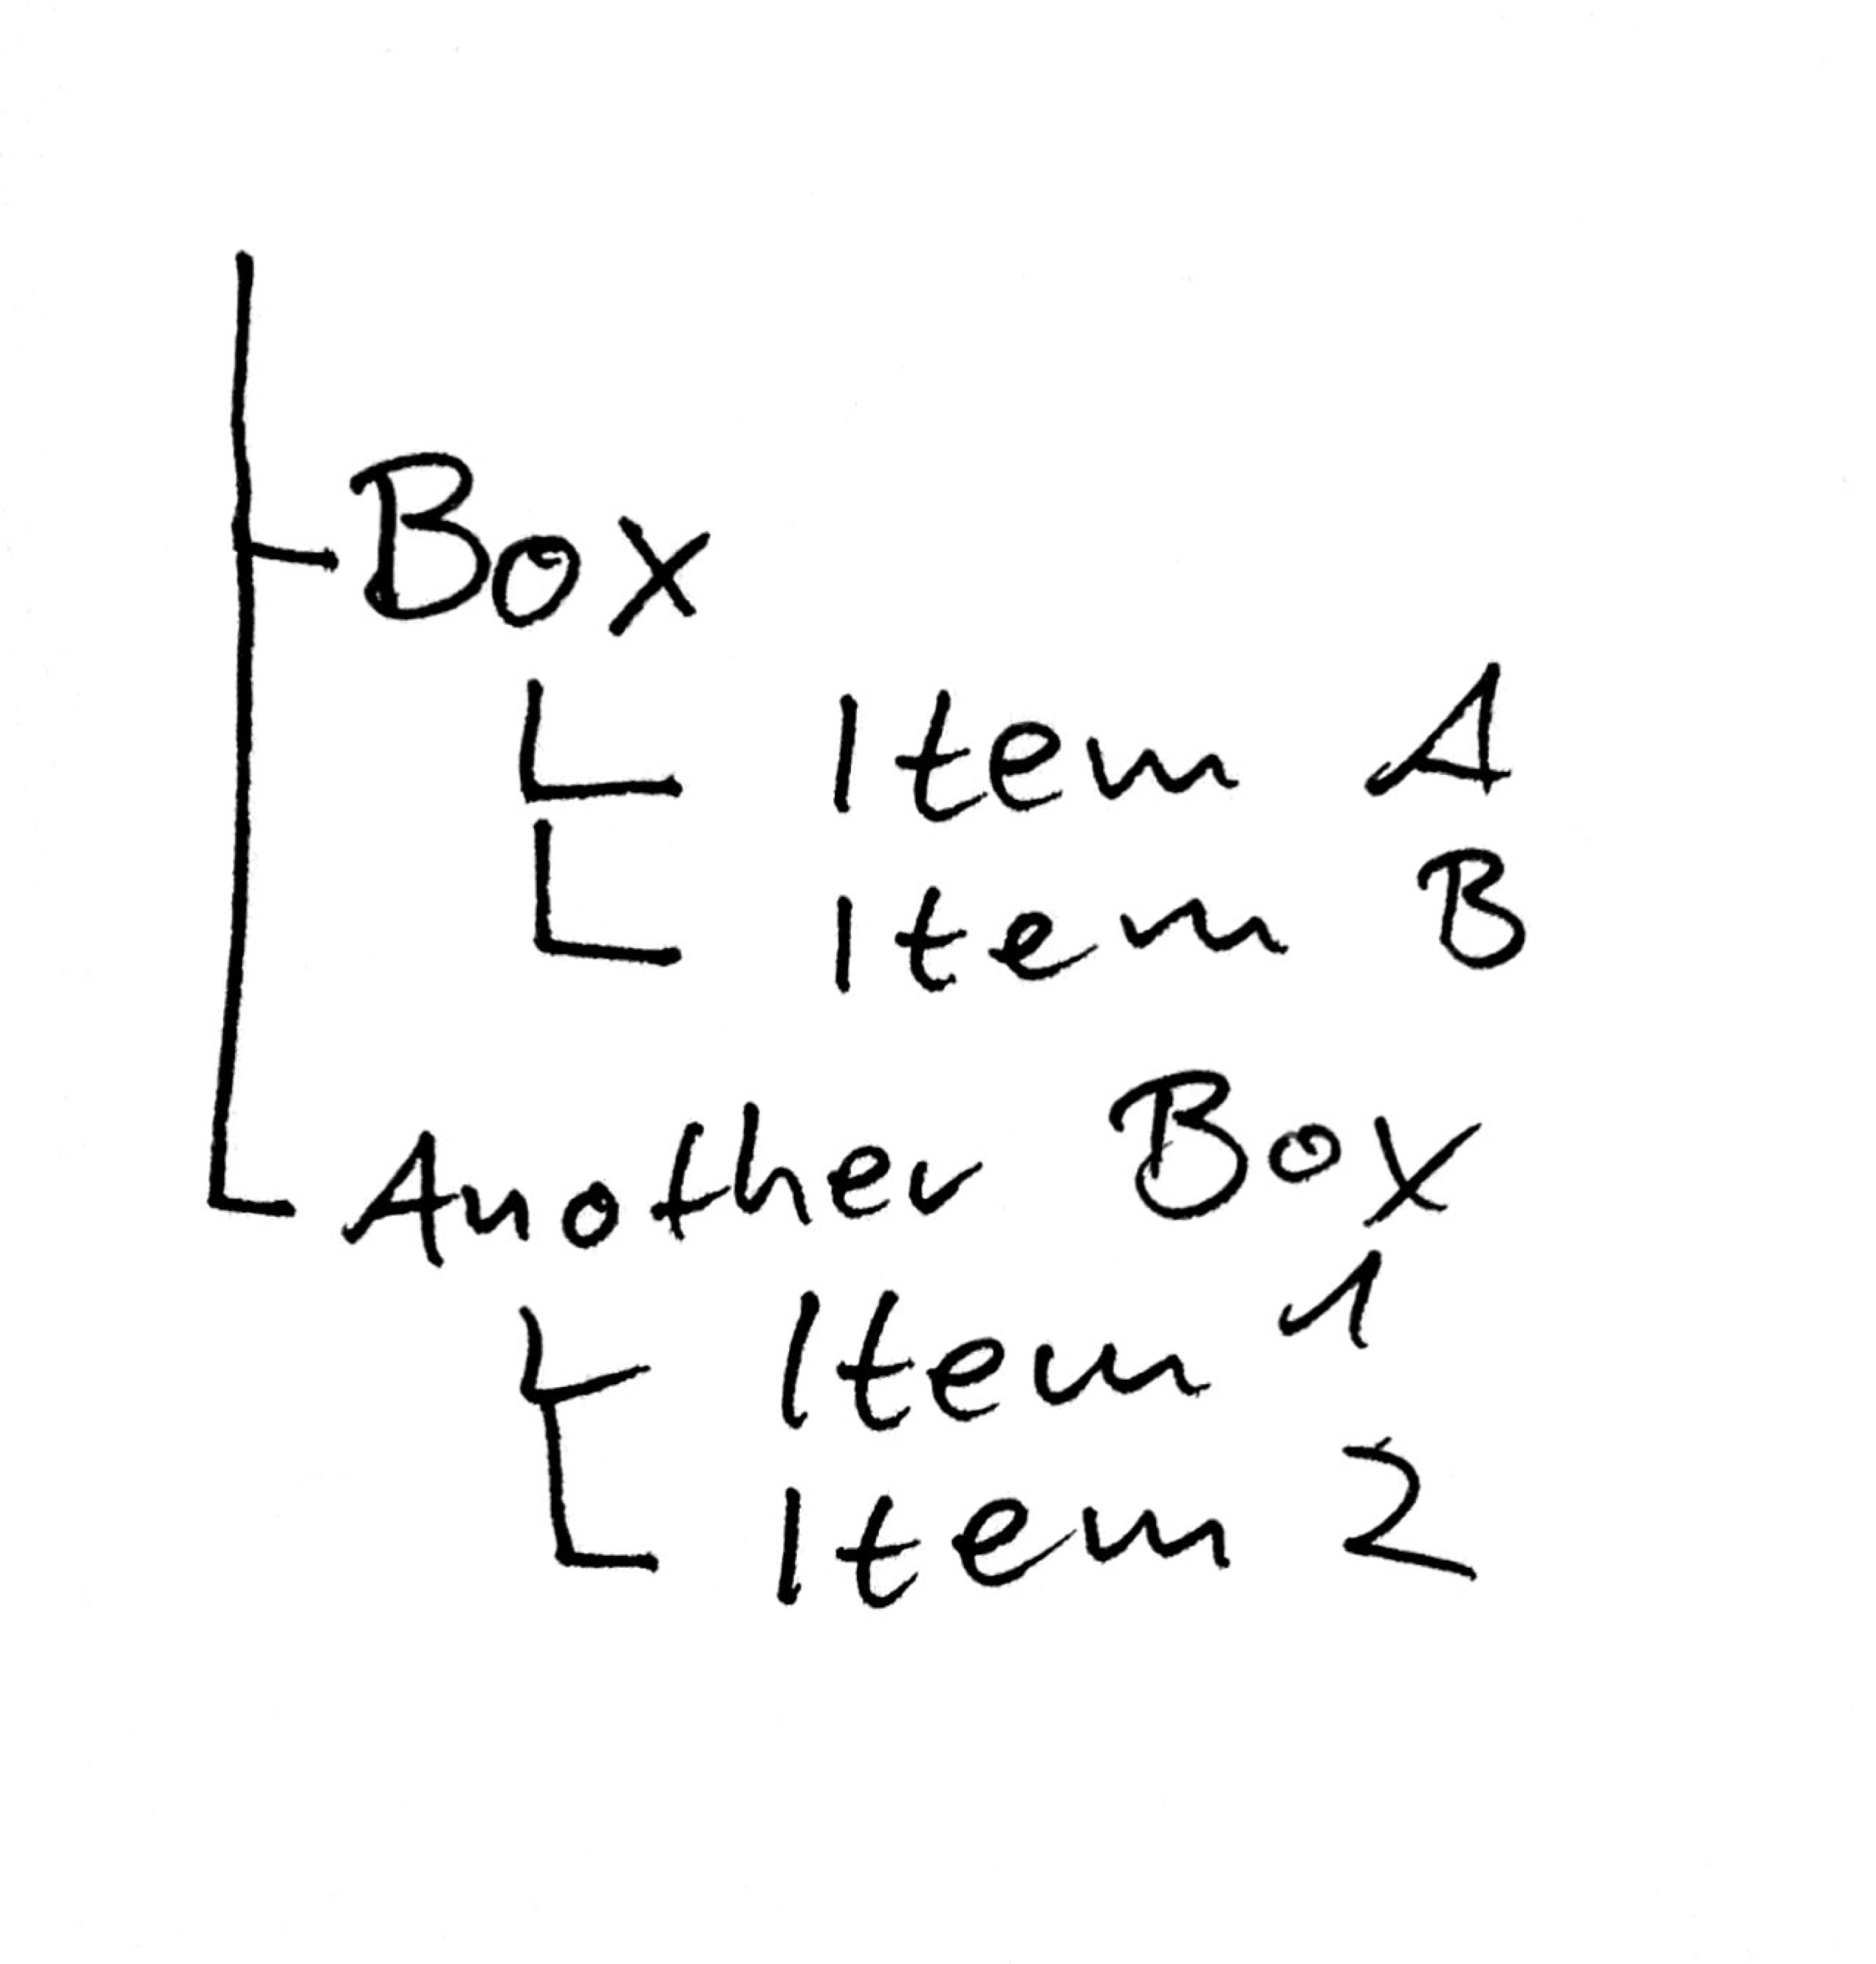 Box
Item A
Item B
Another Box
Item 1
Item 2